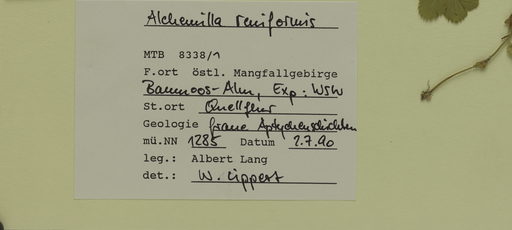 Alchemilla reniformis
MTB 8338/1
F.ort östl. Mangfallgebirge
Baumoos-Alm, Exp: WSW
St.ort Quellflur
Geologie graue Aptychenschichten
mü.NN 1285 Datum 2.7.90
leg.: Albert Lang
det.: W. Lippert